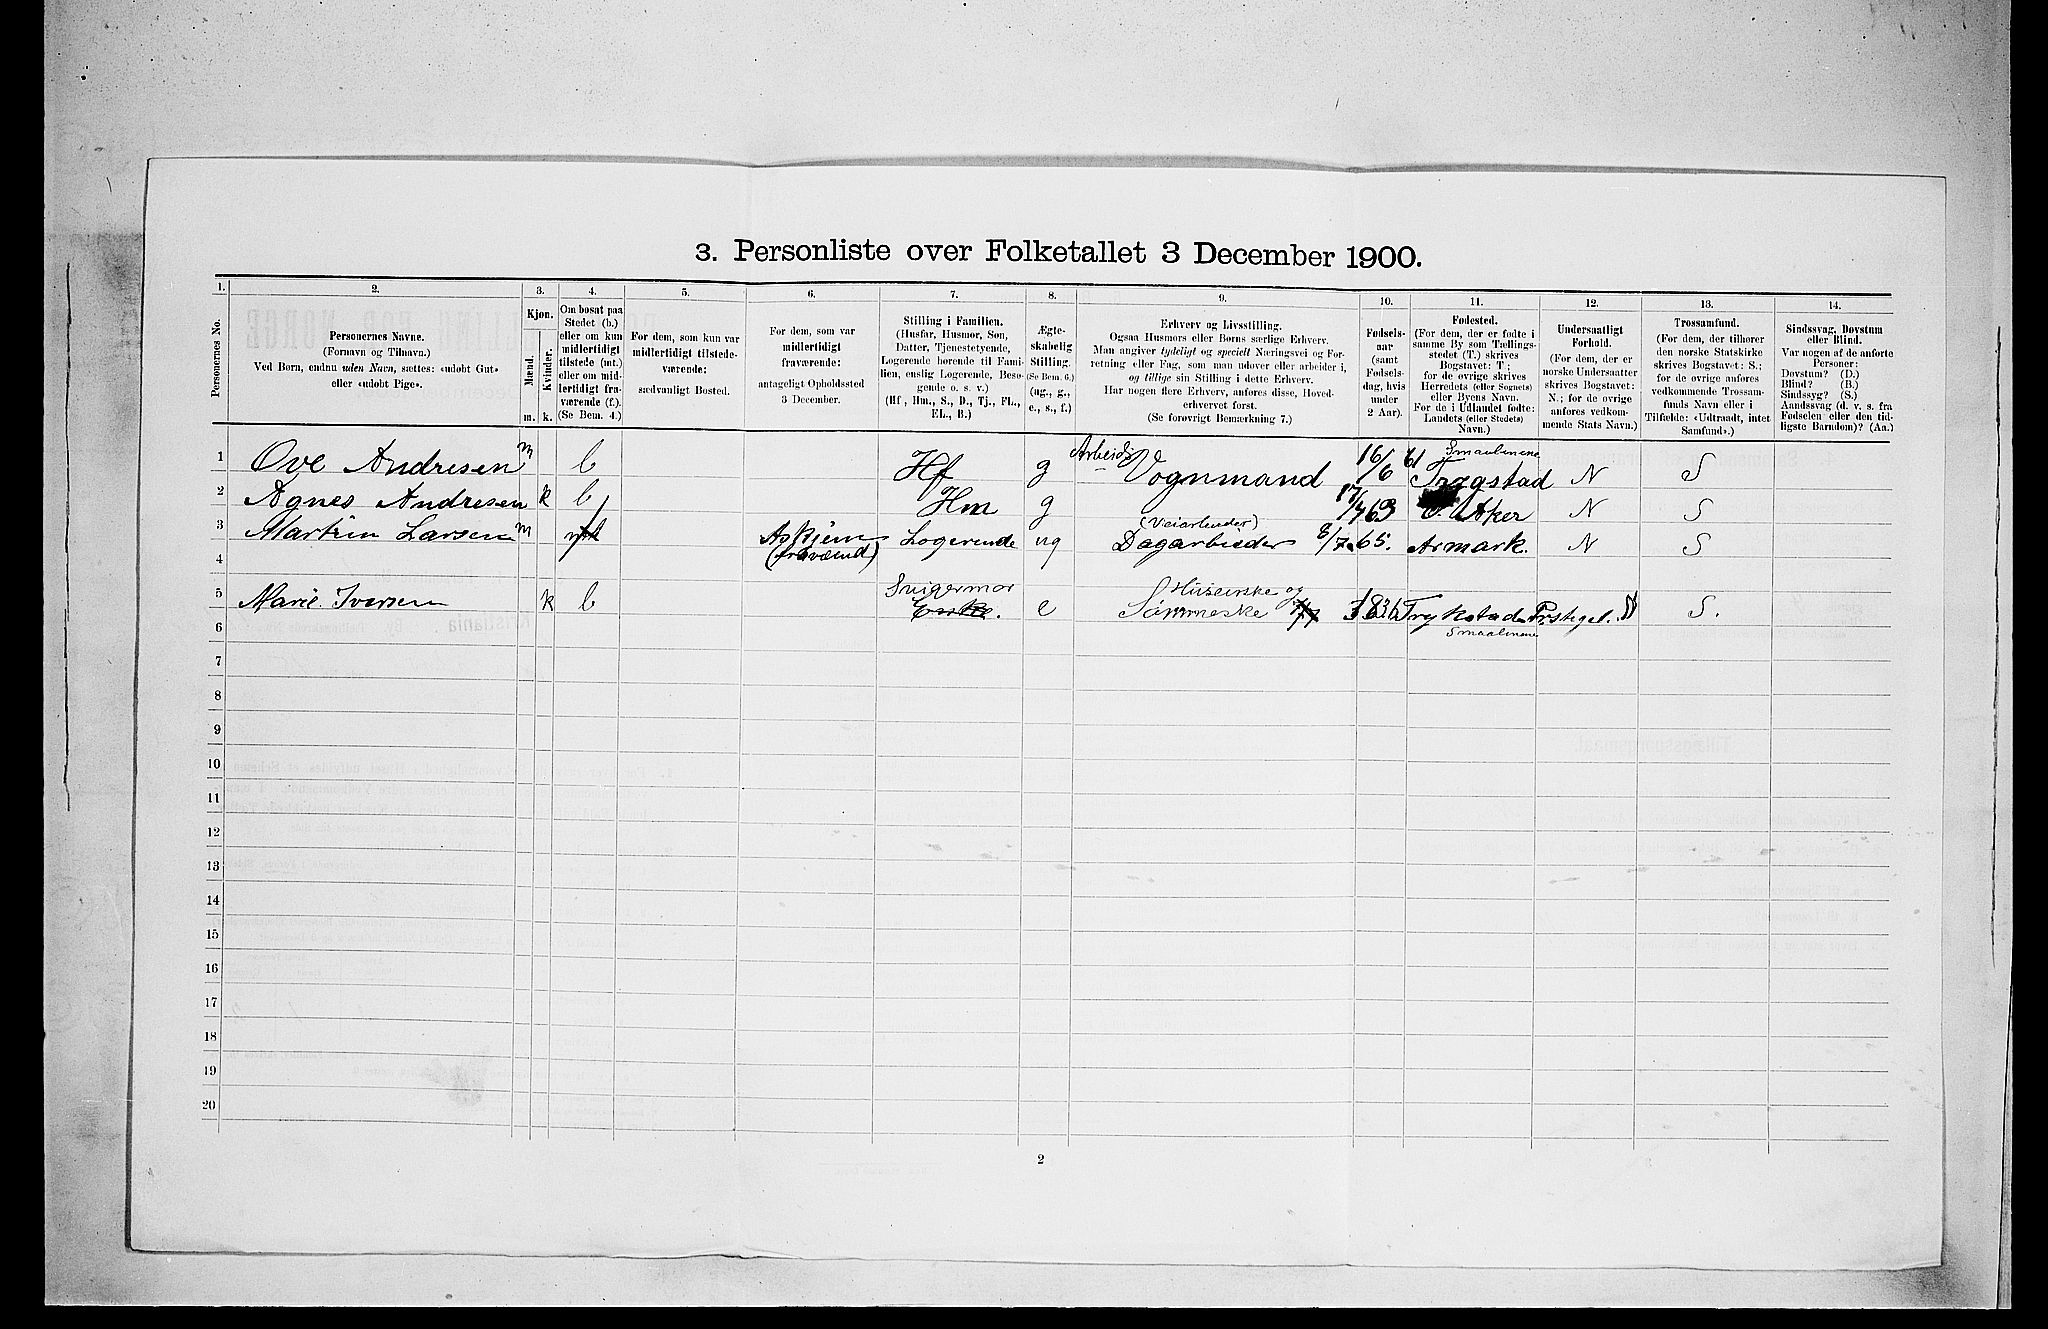 3. Personliste over Folketallet 3 December 1900.
1. 2. 3. 4. 5. 6. 7. 8. 9. 10. 11. 12. 13. 14.
Personernes No.
Personernes Navne.
(Fornavn og Tilnavn.)
Ved Børn, endnu uden Navn, sættes: «udøbt Gut»
eller «udøbt Pige».
Kjøn.
Mænd.
Kvinder.
m. k.
Om bosat paa
Stedet (b.)
eller om kun
midlertidigt
tilstede (mt.)
eller om mid-
lertidigt fra-
værende (f.).
(Se Bem. 4.)
For dem, som kun var
midlertidigt tilstede-
værende:
sædvanligt Bosted.
For dem, som var
midlertidigt
fraværende:
antageligt Opholdssted
3 December.
Stilling i Familien.
(Husfar, Husmor, Søn,
Datter, Tjenestetyende,
Logerende hørende til Fami-
lien, enslig Logerende, Besø-
gende o. s. v.)
(Hf., Hm., S., D., Tj., FL.,
EL., B.)
Ægte-
skabelig
Stilling.
(Se Bem. 6.)
(ug., g.,
e., s., f.)
Erhverv og Livsstilling.
Ogsaa Husmors eller Børns særlige Erhverv.
Man angiver tydeligt og specielt Næringsvei og For-
retning eller Fag, som man udøver eller arbeider i,
og tillige sin Stilling i dette Erhverv.
Har nogen flere Erhverv, anføres disse, Hoved-
erhvervet først.
(Se forøvrigt Bemærkning 7.)
Fødsels-
aar
(samt
Fødsels-
dag, hvis
under
2 Aar).
Fødested.
(For dem, der er fødte i
samme By som Tællings-
stedet (T.) skrives
Bogstavet: T;
for de øvrige skrives
Herredets (eller Sognets)
eller Byens Navn.
For de i Udlandet fødte:
Landets (eller Stedets)
Navn.)
Undersaatligt
Forhold.
(For dem, der er
norske Undersaatter
skrives Bogstavet:
N.; for de øvrige
anføres vedkom-
mende Stats Navn.)
Trossamfund.
(For dem, der tilhører
den norske Statskirke
skrives Bogstavet: S.;
for de øvrige anføres
vedkommende Trossam-
funds Navn eller i
Tilfælde: «Udtraadt, intet
Samfund».)
Sindssvag, Døvstum
eller Blind.
Var nogen af de anførte
Personer:
Døvstum? (D.)
Blind? (B.)
Sindssyg? (S.)
Aandssvag (d. v. s. fra
Fødselen eller den tid-
ligste Barndom)? (Aa.)
1 Ove Andresen m b Hf g Arbeids Vognmand 16/6 61 Smaalenene Trøgstad N S
2 Agnes Andresen k b Hm g 17/7 63 V. Aker N S
3 Martin Larsen m Askjem (fraværnd) Logerende ug (Veiarbeider) Dagarbieder 8/7 65. Aremark. N S
4
5 Marie Iversen k b Svigermor Enske. e Huseierske og Sømmeske 1836 Trykstad Prstigel. Smaalenene N S.
6
7
8
9
10
11
12
13
14
15
16
17
18
19
20
2